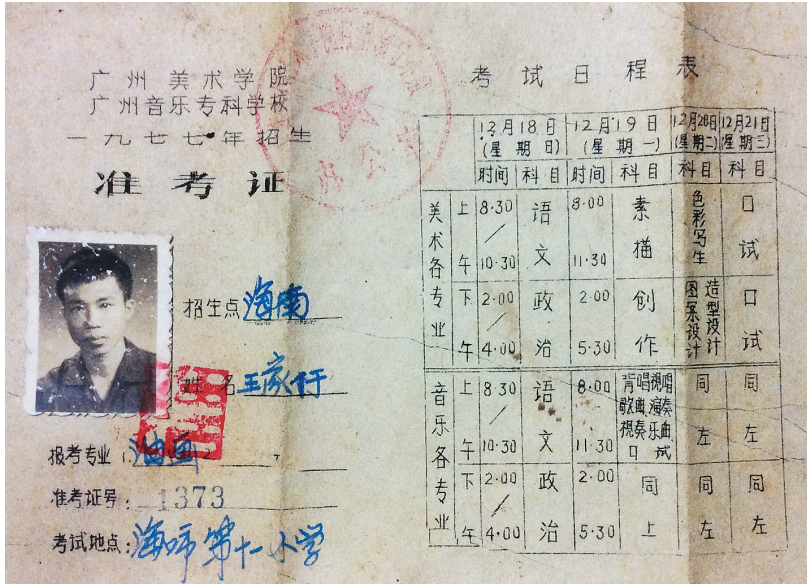 广州美术学院
广州音乐专科学校
一九七七年招生
准考证
招生点 海南
姓名 王家仃
报考专业： 油画
准考证号： 1373
考试地点： 海师第十一小学
考试日程表
12月18日 (星期日) 12月19日 (星期一) 12月20日 (星期二) 12月21日 (星期三)
时间 科目 时间 科目 科目 科目
美术各专业 上午 8·30/10·30 语文 8·00 11·30 素描 色彩写生 口试
下午 2·00/4·00 政治 2·00 5·30 创作 图案设计 造型设计 口试
音乐各专业 上午 8·30/10·30 语文 8·00 11·30 背唱视唱 歌曲演奏 视奏乐曲 口试 同左 同左
下午 2·00/4·00 政治 2·00 5·30 同上 同左 同左